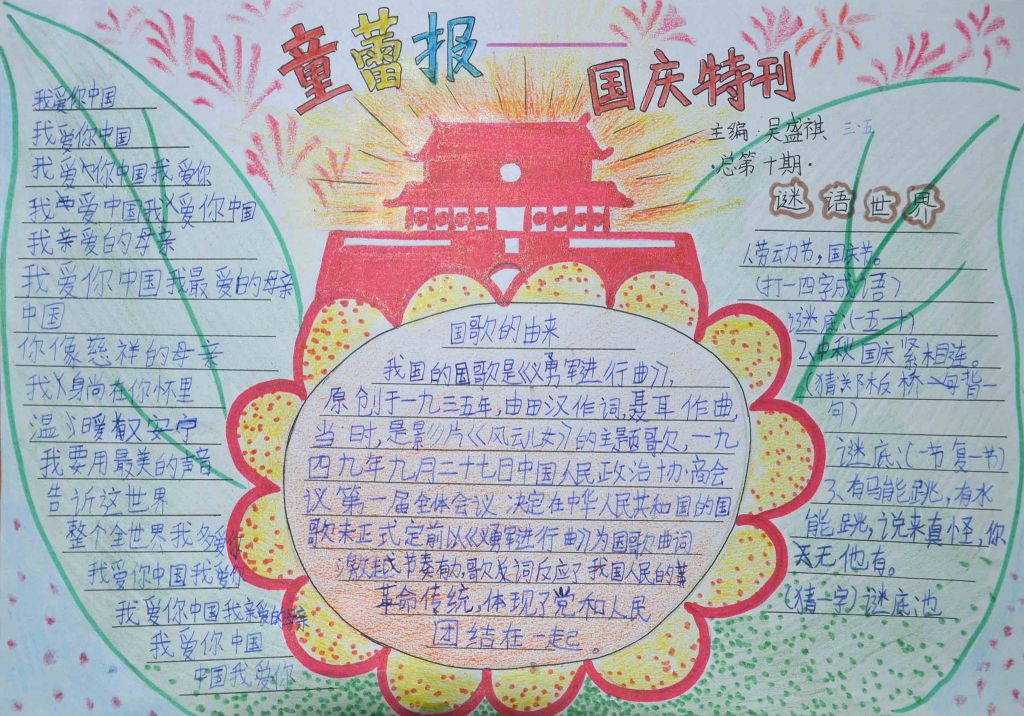 童蕾报
国庆特刊
主编：吴盛祺 三·五
·总第十期·
我爱你中国
我爱你中国
我爱你中国我爱你
我爱中国我爱你中国
我亲爱的母亲
我爱你中国我最爱的母亲
中国
你像慈祥的母亲
我身尚在你怀里
温暖又安宁
我要用最美的声音
告诉这世界
整个全世界我多爱你
我爱你中国我爱你
我爱你中国我亲爱的母亲
我爱你中国
中国我爱你
国歌的由来
我国的国歌是《义勇军进行曲》，
原创于一九三五年，由田汉作词，聂耳作曲，
当时，是影片《风云儿女》的主题歌，一九
四九年九月二十七日中国人民政治协商会
议第一届全体会议决定在中华人民共和国的国
歌未正式定前以《义勇军进行曲》为国歌曲词
激越节奏有力，歌词反应了我国人民的革
革命传统，体现了党和人民
团结在一起。
谜语世界
1、劳动节，国庆节。
(打一四字成语)
谜底：(一五一十)
2、中秋国庆紧相连。
(猜郑板桥一每背一
句)
谜底：(一节复一节)
3、有马能跳，有水
能跳，说来真怪，你
无他有。
(猜一字)谜底池